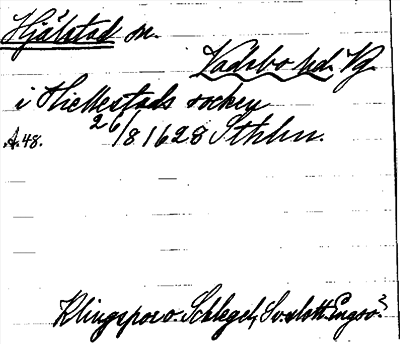 Hjälstad sn.
Vadsbo hd. Vg.
i Hiellestads socken
A.48. 26/8 1628 Sthlm.
Klingspor o. Schlegel, Sv. slott. Engsö?